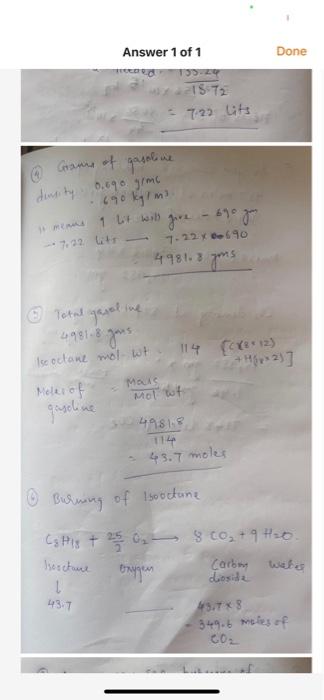 Answer 1 of 1
Done
needed = 135.24
18.72
= 7.22 Lits
④ Grams of gasoline
density : 0.690 g/ml
: 690 kg/m3.
It means 1 Lit will give - 690 gm
→ 7.22 lits — 7.22 x 690
: 4981.8 gms
⑤ Total gasoline
4981.8 gms
Isooctane mol. wt : 114 [C(8×12)
+ H(18×2)]
Moles of = Mass
gasoline Mol wt
= 4981.8
114
= 43.7 moles
⑥ Burning of Isooctane
C8H18 + 25/2 O2 → 8 CO2 + 9 H2O.
Isooctane Oxygen Carbon water
dioxide
↓
43.7 — 43.7 x 8
= 349.6 moles of
CO2